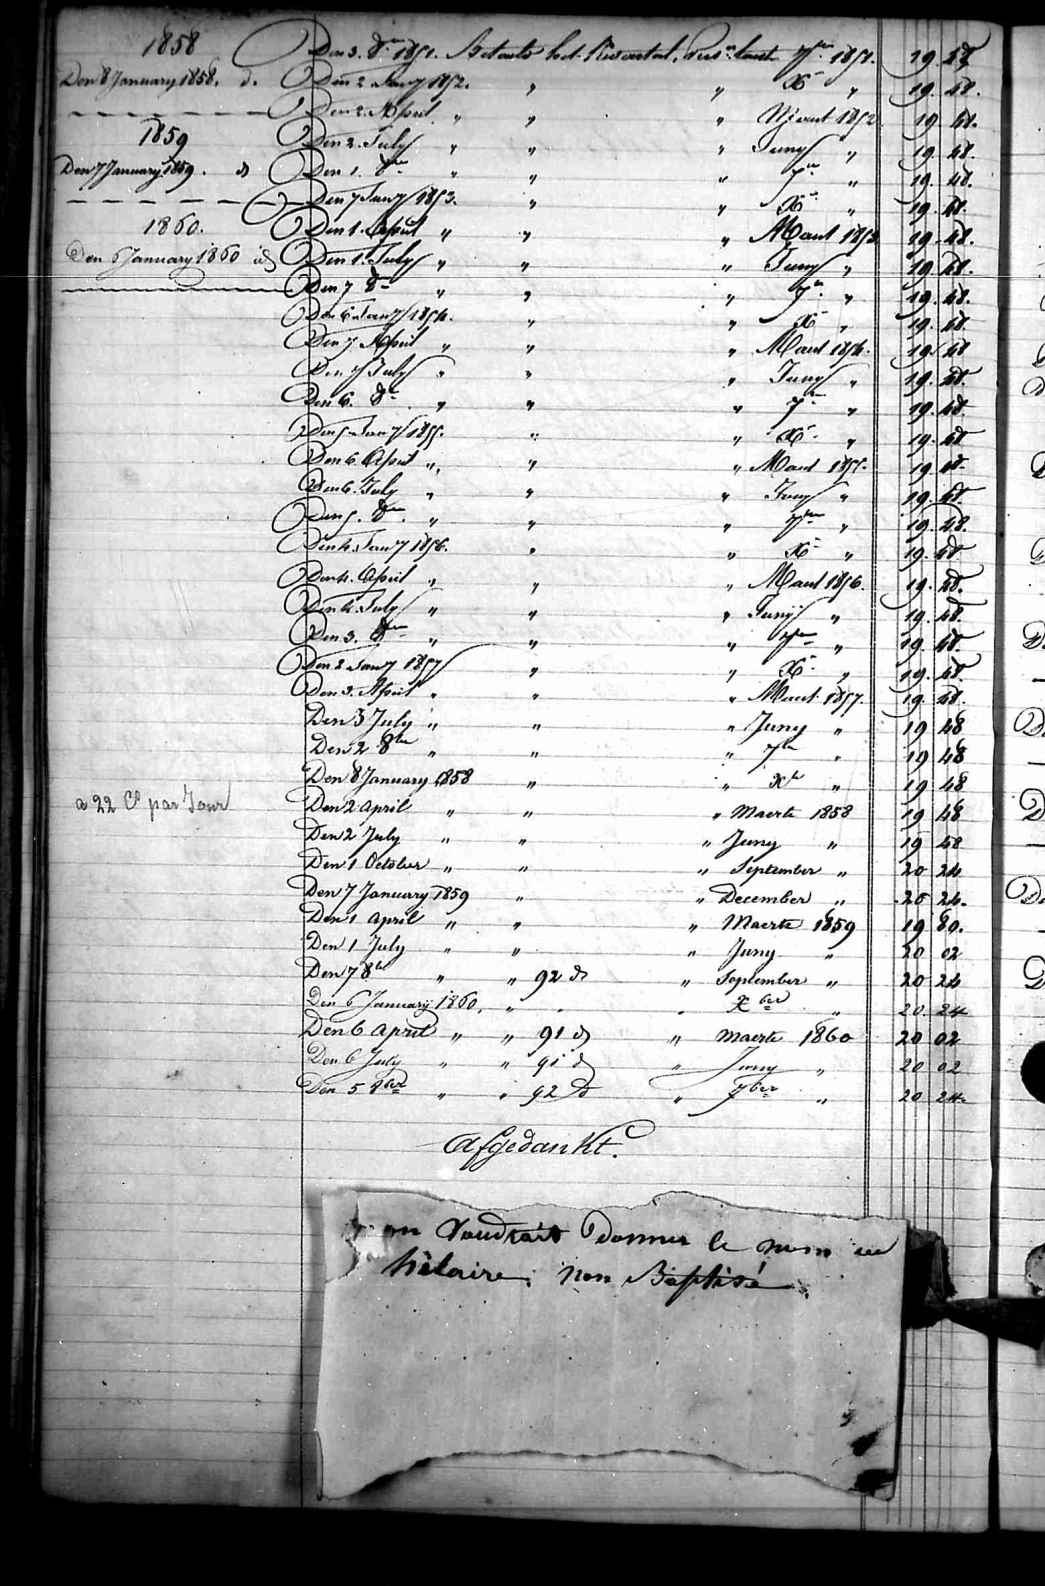 1858
Den 8 January 1858. d.
1859
Den 7 January 1859. d
1860.
Den 6 January 1860 id
a 22 Cs par Jour
Den 3. 8re 1851. betaelt het Kwartael, 7bre 1851. 19. 48
Den 2 Jany 1852. " " Xre " 19. 48.
Den 2. April " " " Maert 1852 19 48.
Den 2. July " " " Juny " 19. 48.
Den 1. 8re " " " 7re " 19. 48.
Den 7 Jany 1853. " " Xre " 19. 48.
Den 1. April " " " Maert 1853 19. 48.
Den 1. July " " " Juny " 19 48.
Den 7 8re " " " 7re " 19. 48.
Den 6 Jany 1854. " " Xre " 19. 48
Den 7 April " " " Maert 1854. 19. 48
Den 7 July " " " Juny " 19. 48.
Den 6. 8re " " " 7re " 19. 48.
Den 5 Jany 1855. " " Xre " 19. 48
Den 6 April " " " Maert 1855. 19 48
Den 6. July " " " Juny " 19. 48.
Den 5. 8re " " " 7bre " 19. 48.
Den 4. Jany 1856. " " Xre " 19. 48
Den 4. April " " " Maert 1856. 19. 48.
Den 4. July " " " Juny " 19. 48.
Den 3. 8bre " " " 7bre " 19. 48.
Den 2 Jany 1857 " " Xre " 19. 48.
Den 3. April " " " Maert 1857. 19. 48.
Den 3 July " " " Juny " 19 48
Den 2 8bre " " " 7bre " 19 48
Den 8 January 1858 " " Xre " 19 48
Den 2 April " " " Maerte 1858 19 48
Den 2 July " " " Juny " 19 48
Den 1 October " " " September " 20 24
Den 7 January 1859 " " December " 20 24.
Den 1 April " " " Maerte 1859 19 80.
Den 1 July " " " Juny " 20 02
Den 7 8bre " " 92 d " September " 20 24
Den 6 January 1860. " " " Xber " 20. 24
Den 6 April " " 91 d " Maerte 1860 20 02
Den 6 July " " 91 d " Juny " 20 02
Den 5 8ber " " 92 d " 7ber " 20 24.
Afgedankt.
on Voudrait Donner le nom
hilaire, non Baptisé.